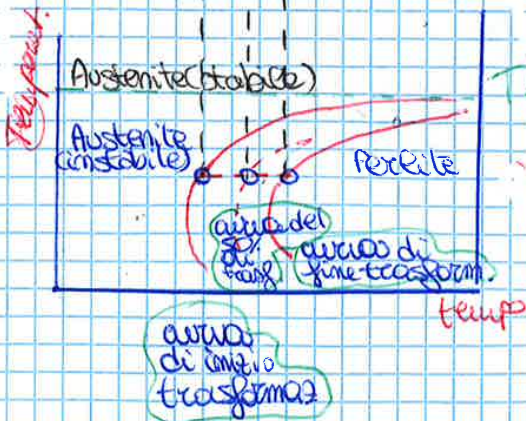 Temperat.
Austenite (stabile)
Austenite
(instabile)
Perlite
curva del
50%
di
trasf.
curva di
fine-trasform.
tempo
curva
di inizio
trasformaz